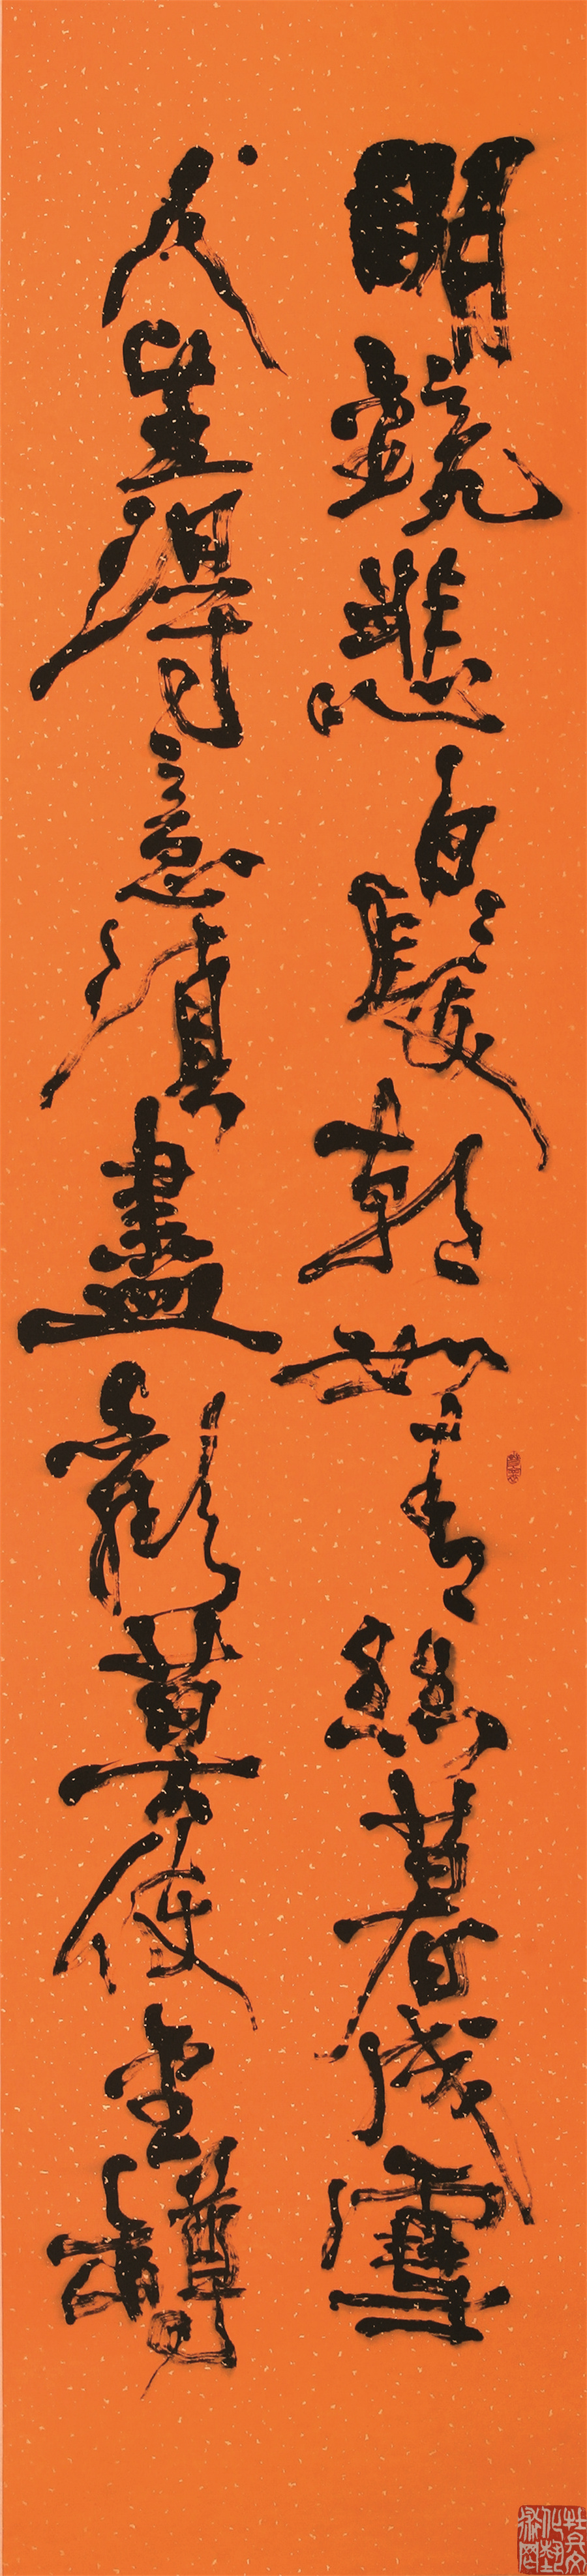 明鏡悲白髮朝如青絲暮成雪
人生得意須盡歡莫使金罇